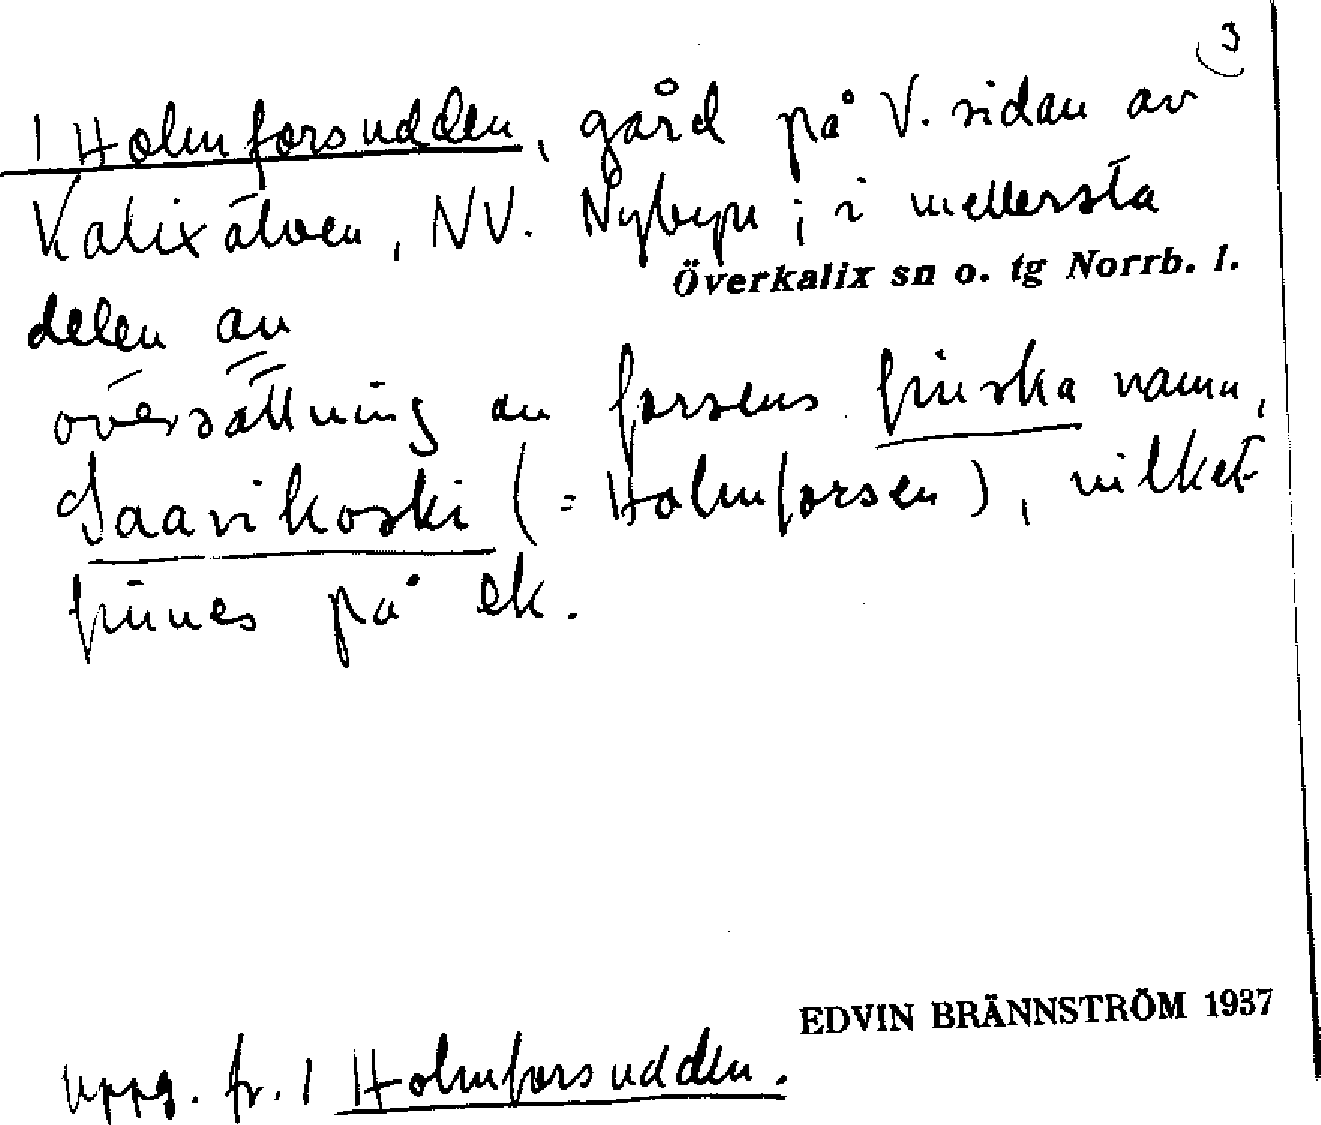 3
1 Holmforsudden, gård på V. sidan av
Kalixälven, NV. Nybyn; i mellersta
Överkalix sn o. tg Norrb. l.
delen av
översättning av forsens finska namn,
Saarikoski (= Holmforsen), vilket
finnes på ek.
EDVIN BRÄNNSTRÖM 1937
uppg. fr. 1 Holmforsudden.